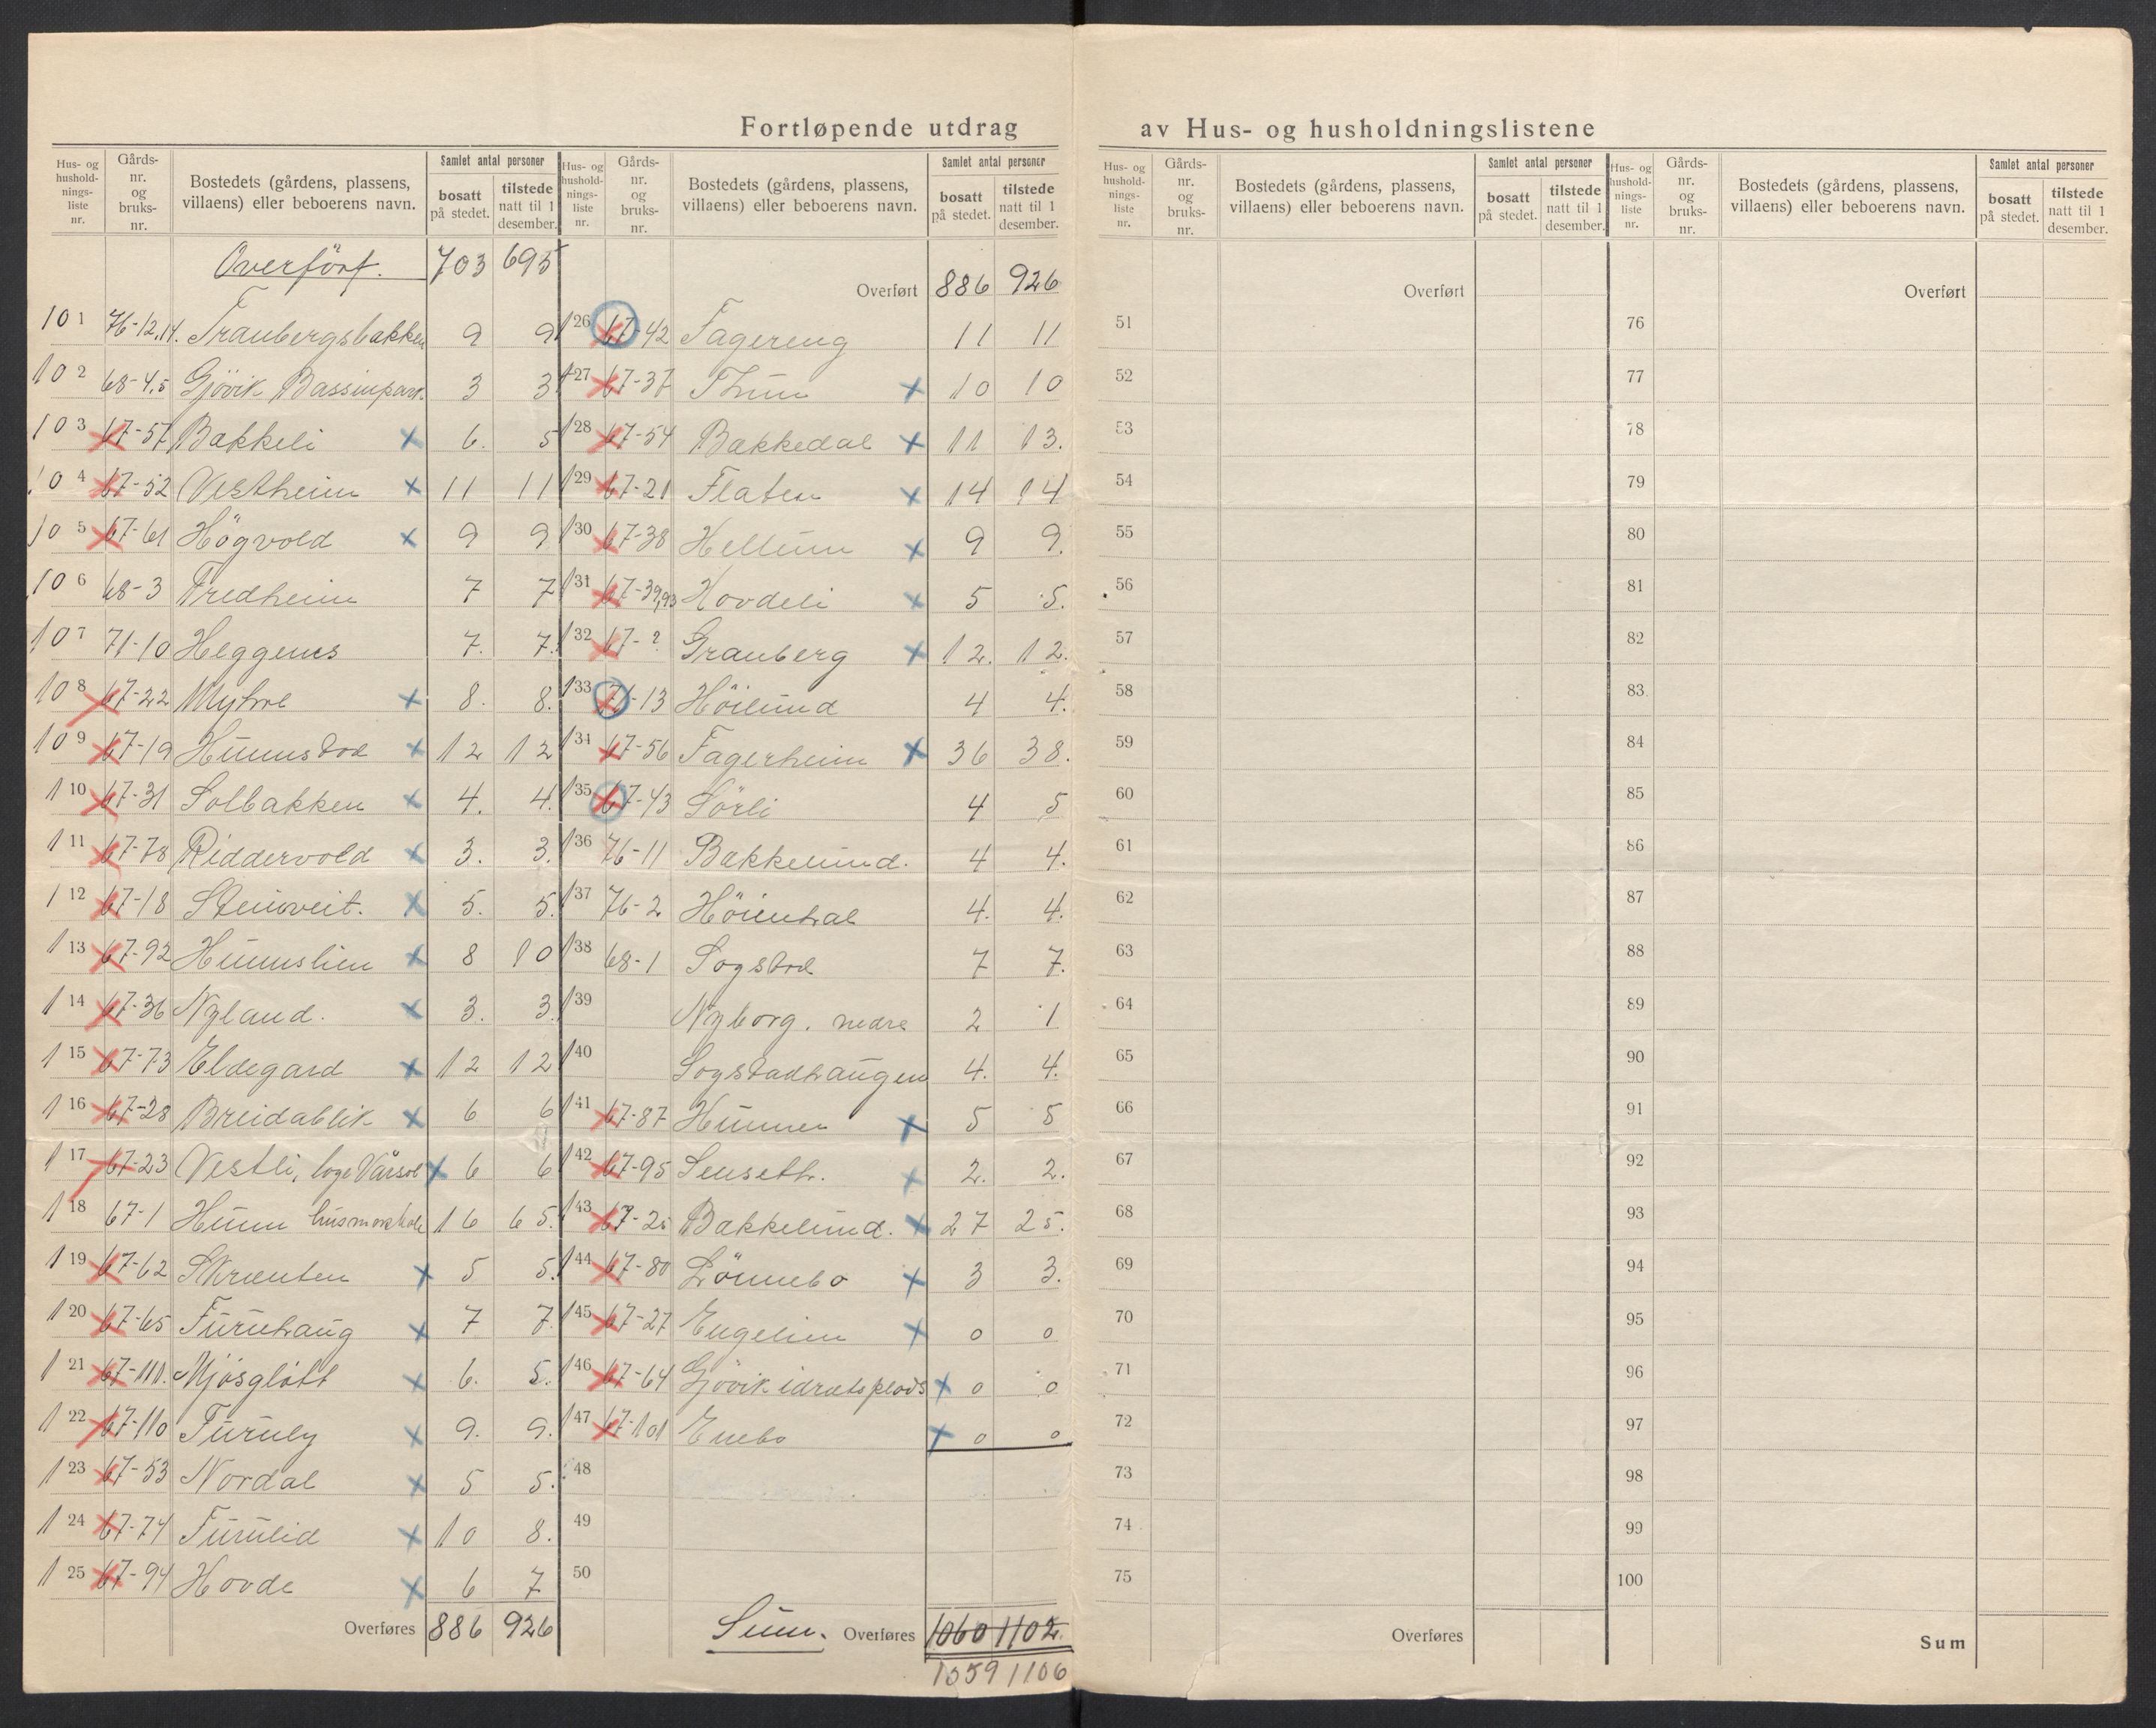 Fortløpende utdrag av Hus- og husholdningslistene
Hus- og husholdningsliste nr. | Gårds-nr. og bruks-nr. | Bostedets (gårdens, plassens, villaens) eller beboerens navn. | Samlet antal personer | bosatt på stedet. | tilstede natt til 1 desember.
Overført. 703 695
101 76-12,14. Traubergsbakken 9 9
102 68-4,5 Gjövik Bassinpark. 3 3
103 67-57 Bakkeli x 6. 5
104 67-52 Vestheim x 11 11
105 67-61 Högvold x 9 9
106 68-3 Fredheim 7 7
107 71-10 Heggenes 7. 7.
108 67-22 Myhre x 8. 8.
109 67-19 Hunnstod x 12 12
110 67-31 Solbakken x 4. 4.
111 67-78 Riddervold x 3. 3.
112 67-18 Stensveit. x 5. 5.
113 67-92 Hunnslien x 8 10
114 67-36 Nyland. x 3. 3.
115 67-73 Eldegard x 12 12
116 67-28 Breidablik x 6 6
117 67-23 Vestli, loge Vårsol x 6 6
118 67-1 Hunn husmorskole 16 65.
119 67-62 Skrenten x 5 5.
120 67-65 Furuhaug x 7 7
121 67-111. Mjösglött x 6. 5.
122 67-110 Furuly x 9. 9.
123 67-53 Nordal x 5 5.
124 67-74 Furulid x 10 8.
125 67-94 Hovde x 6 7
Overføres 886 926
Hus- og husholdningsliste nr. | Gårds-nr. og bruks-nr. | Bostedets (gårdens, plassens, villaens) eller beboerens navn. | Samlet antal personer | bosatt på stedet. | tilstede natt til 1 desember.
Overført 886 926
126 67-42 Fagereng 11 11
127 67-37 Thun x 10 10
128 67-54 Bakkedal x 11 13.
129 67-21 Flaten x 14 14
130 67-38 Hellum x 9 9.
131 67-39,93 Hovdeli x 5 5.
132 67-? Grauberg x 12. 12.
133 71-13 Höilund 4 4.
134 67-56 Fagerheim x 36 38.
135 67-43 Sörli 4 5
136 76-11 Bakkelund. 4 4.
137 76-2 Höienhal 4. 4.
138 68-1 Sogstad 7 7.
139 Nyborg. nedre 2 1
140 Sogstadhaugen 4. 4.
141 67-87 Hunner x 5 5
142 67-95 Senseth. x 2. 2.
143 67-25 Bakkelund. x 27 25.
144 67-80 Lönnebo x 3 3.
145 67-27 Engelien x 0 0
146 67-64 Gjövik idrætsplads x 0 0
147 67-101 Enebo x 0 0
48
49
50
Sum. Overføres 1060 1102.
1059 1106
Hus- og husholdningsliste nr. | Gårds-nr. og bruks-nr. | Bostedets (gårdens, plassens, villaens) eller beboerens navn. | Samlet antal personer | bosatt på stedet. | tilstede natt til 1 desember.
Overført
51
52
53
54
55
56
57
58
59
60
61
62
63
64
65
66
67
68
69
70
71
72
73
74
75
Overføres
Hus- og husholdningsliste nr. | Gårds-nr. og bruks-nr. | Bostedets (gårdens, plassens, villaens) eller beboerens navn. | Samlet antal personer | bosatt på stedet. | tilstede natt til 1 desember.
Overført
76
77
78
79
80
81
82
83
84
85
86
87
88
89
90
91
92
93
94
95
96
97
98
99
100
Sum